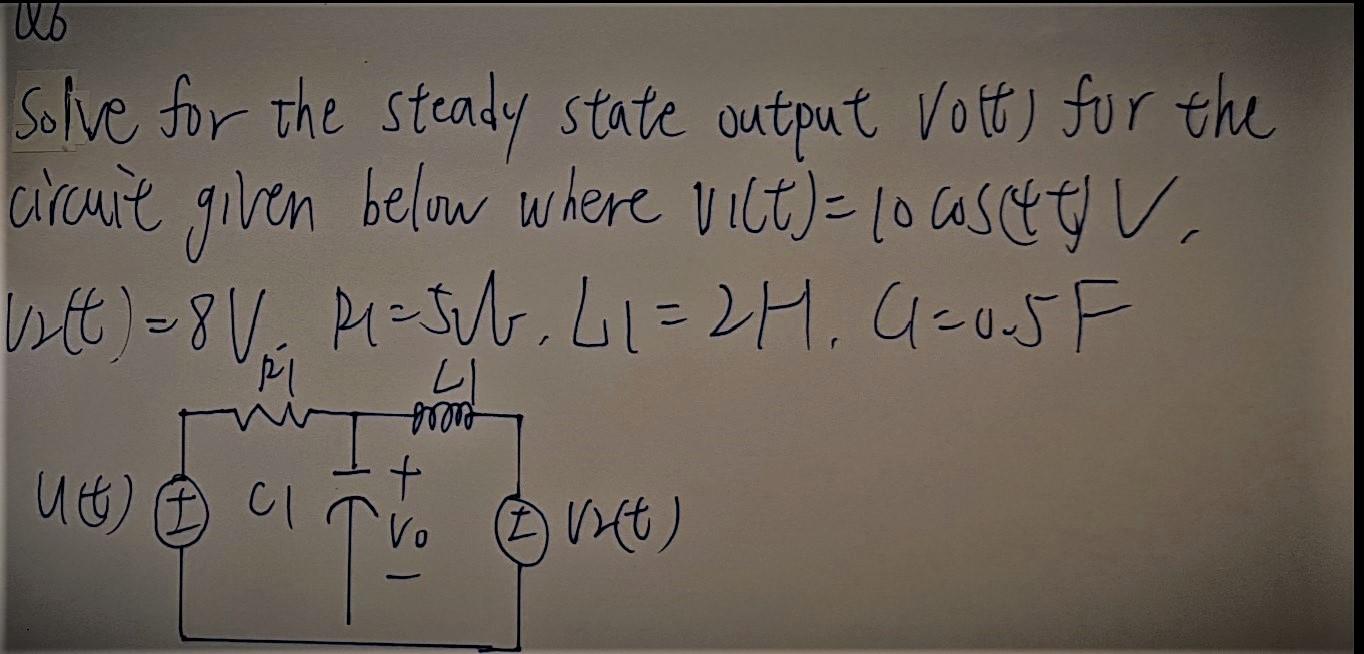 Q6
Solve for the steady state output Vo(t) for the
circuit given below where V1(t)=10 cos(4t) V,
V2(t)=8V, R1=5Ω, L1=2H, C1=0.5F
R1 L1
V1(t) ± C1 + Vo - ± V2(t)